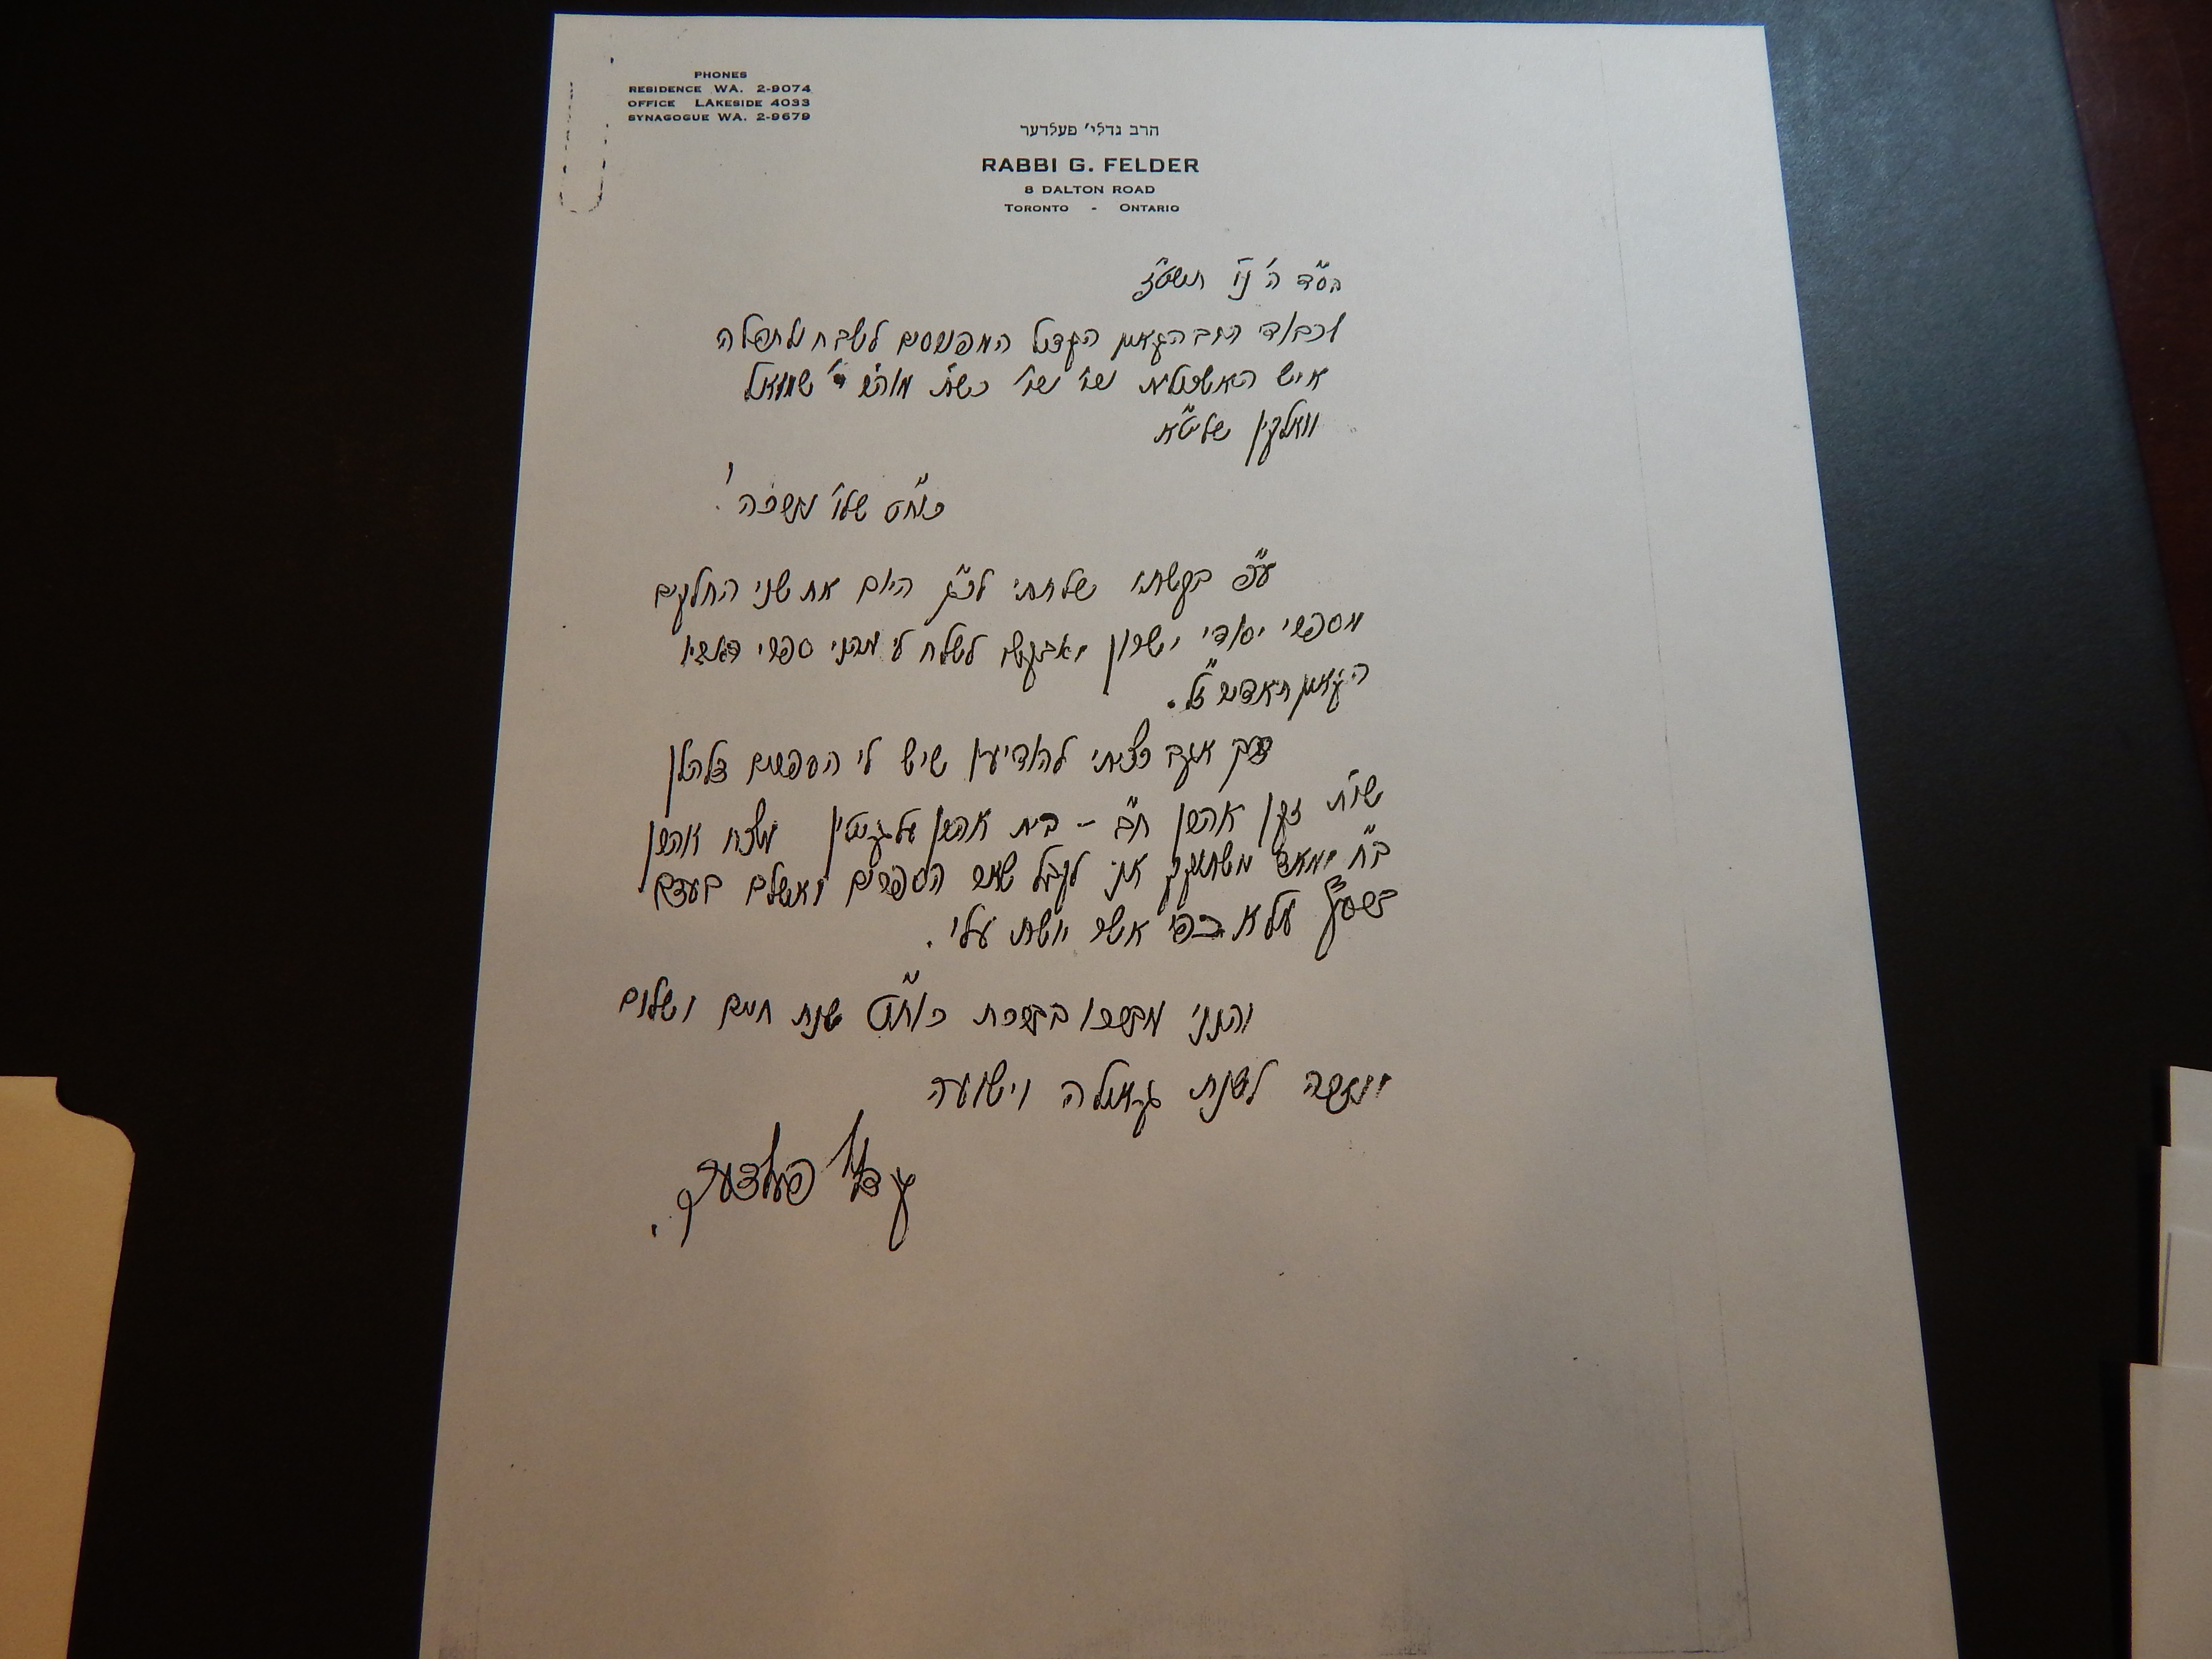 PHONES
RESIDENCE WA. 2-9074
OFFICE LAKESIDE 4033
SYNAGOGUE WA. 2-9679
הרב גדלי' פעלדער
RABBI G. FELDER
8 DALTON ROAD
TORONTO - ONTARIO
בס"ד ה' תשט"ז
לכבוד הרב הגאון הגדול המפורסם לשבח ולתהלה
איש האשכולות שמואל
וואלקין שליט"א
כוח"ט שלו' וברכה!
עפ"י בקשתו שלחתי לכ"ג היום את שני החלקים
מספרי יסודי ישרון ואבקשו לשלח לי מבתי ספרי
הגאון האדיר ז"ל.
דרך אגב רציתי להודיעו שיש לי הספרים דלהלן
שו"ת זקן אהרן ח"ב - בית אהרן על גיטין מצח אהרן
ב"ח ומאד משתוקק אני לקבל שאר הספרים ואשלם בעדם
כפי אשר יושת עלי.
והנני מברכו בברכת כוח"ט שנת חיים ושלום
ונזכה לשנת גאולה וישועה
גדלי' פעלדער.